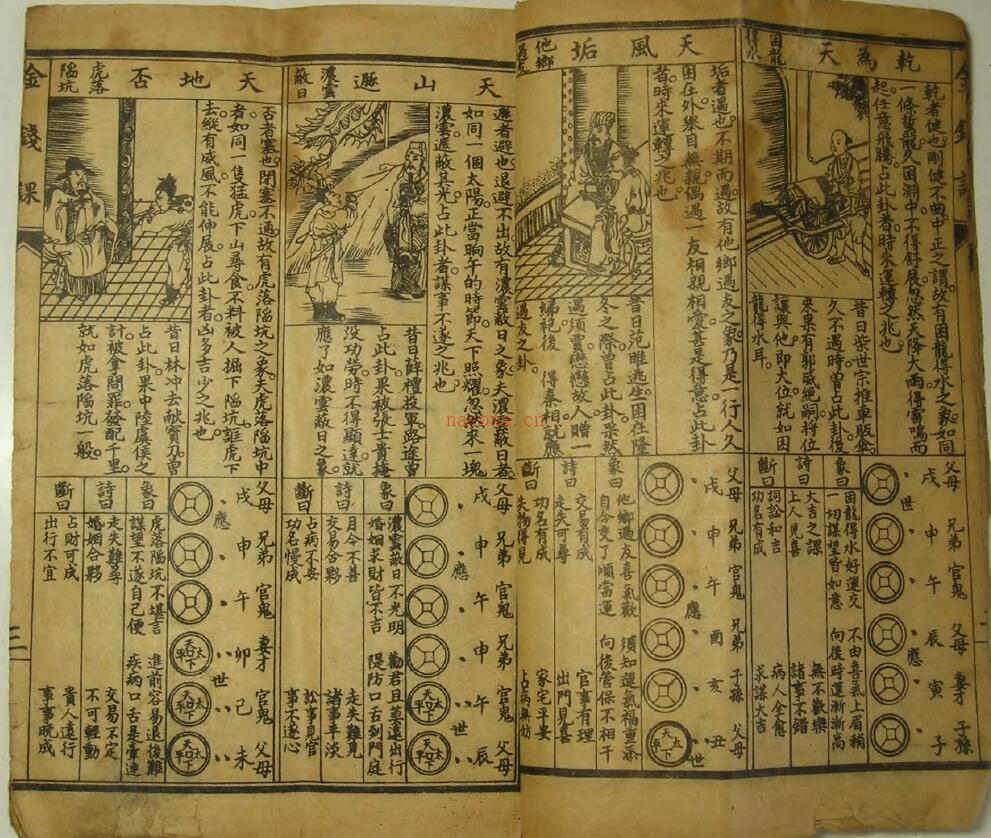 乾為天
困龍
得水
乾者健也剛健不曲中正之謂故有困龍得水之象如同
一條蟄龍久困淵中不得舒展忽然天降大雨得雷鳴而
起任意飛騰占此卦者時來運轉之兆也
昔日柴世宗推車販傘
久不遇時曾占此卦後
來果有郭威絕嗣將位
讓與他即大位就如困
龍得水耳
父母 戌 世
兄弟 申
官鬼 午
父母 辰 應
妻才 寅
子孫 子
象曰
困龍得水好運交 不由喜氣上眉稍
一切謀望皆如意 向後時運漸漸高
詩曰
大吉之課 無不歡樂
上人見喜 諸事不錯
斷曰
詞訟和吉 病人全愈
功名有成 求謀大吉
天風垢
他鄉
遇友
垢者遇也不期而遇故有他鄉遇友之象乃是一行人久
困在外舉目無親偶遇一友相親相愛甚是得意占此卦
者時來運轉之兆也
昔日范睢逃生困在隆
冬之際曾占此卦果然
遇須賈戀戀故人贈一
綈袍後 得秦相就應
遇友之卦
父母 戌
兄弟 申
官鬼 午 應
兄弟 酉
子孫 亥
父母 丑 世
天下太平
象曰
他鄉遇友喜氣歡 須知運氣福重添
自今交了順當運 向後管保不相干
詩曰
交易有成 官事有理
走失可尋 出門見喜
斷曰
功名有成 家宅平安
失物得見 占病無妨
天山遯
濃雲
蔽日
遯者避也退避不出故有濃雲蔽日之象夫濃雲蔽日者
如同一個太陽正當晌午的時節天下照耀忽下來一塊
濃雲遮蔽其光占此卦者謀事不遂之兆也
昔日薛禮投軍路途曾
占此卦果被張士貴掩
没功勞時不得顯達就
應了如濃雲蔽日之象
父母 戌
兄弟 申 應
官鬼 午
兄弟 申
官鬼 午 世
父母 辰
天下太平
天下太平
象曰
濃雲蔽日不光明 勸君且莫遠出行
婚姻求財皆不吉 隄防口舌到門庭
詩曰
月令不善 走失難見
交易不合夥 諸事平淡
斷曰
占病不安 訟事見官
功名慢成 事不遂心
天地否
虎落
陷坑
否者塞也閉塞不通故有虎落陷坑之象夫虎落陷坑中
者如同一隻猛虎下山尋食不料被人掘下陷坑誆虎下
去縱有威風不能伸展占此卦者凶多吉少之兆也
昔日林冲去献寶刀曾
占此卦果中陸虞侯之
計被拿問罪發配千里
就如虎落陷坑一般
父母 戌 應
兄弟 申
官鬼 午
妻才 卯 世
官鬼 巳
父母 未
天下太平
天下太平
天下太平
象曰
虎落陷坑不堪言 進前容易退後難
謀望不遂自己便 疾病口舌是牽連
詩曰
走失難尋 交易不定
婚姻合夥 不可輕動
斷曰
占財可成 貴人遠行
出行不宜 事事晚成
金錢課
三
nayona.cn